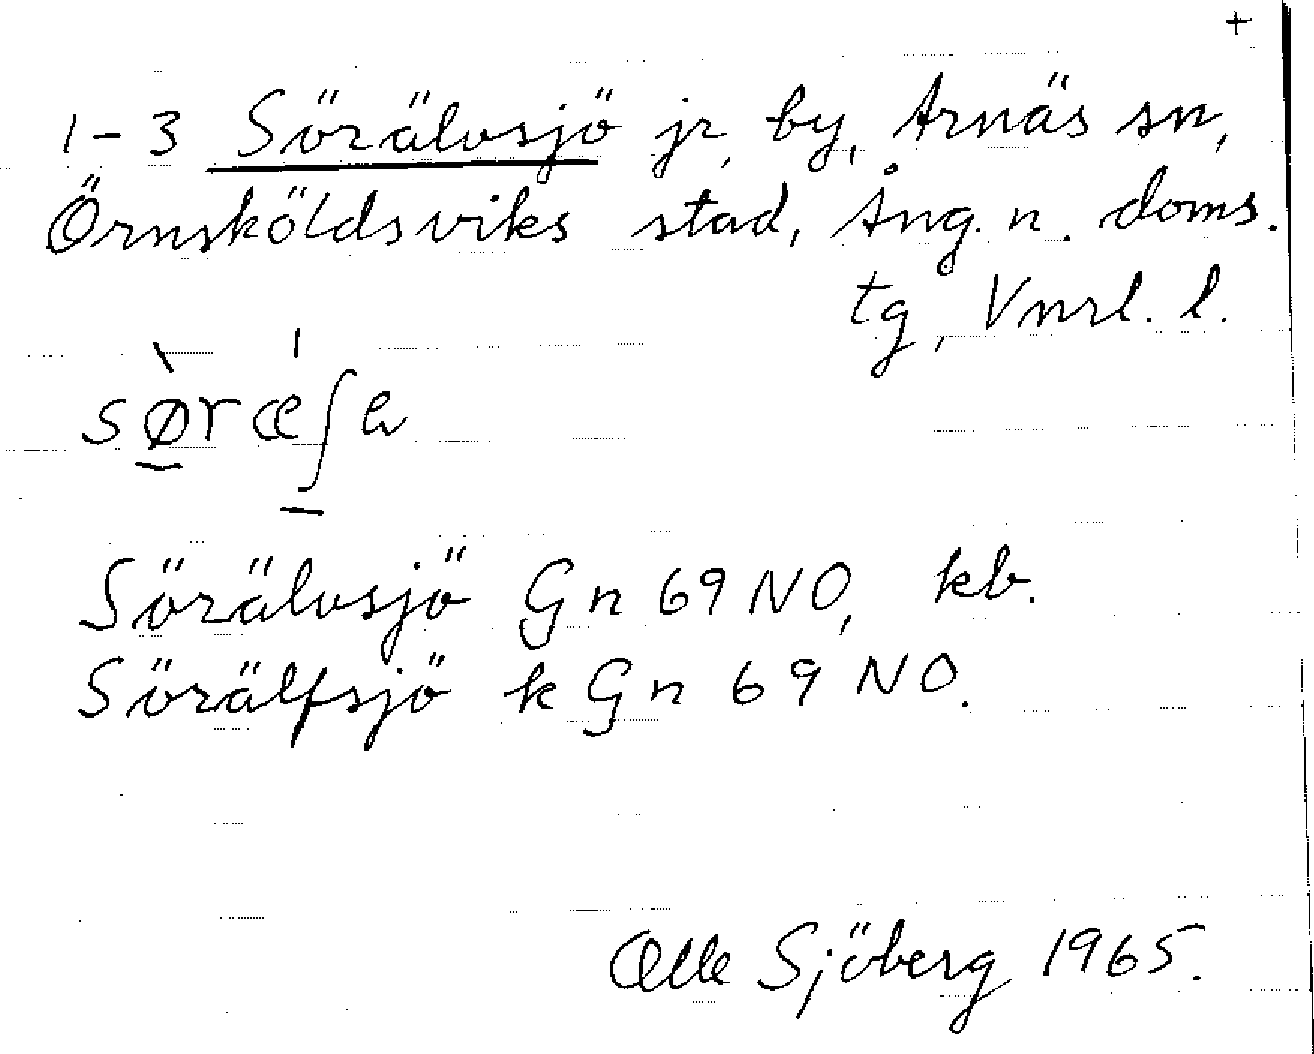 +
1-3 Sörälvsjö jr, by, Arnäs sn,
Örnsköldsviks stad, Ång. n. doms.
tg, Vnrl. l.
Sörälvsjö Gn 69 NO, kb.
Sörälfsjö k Gn 69 NO.
Olle Sjöberg 1965.